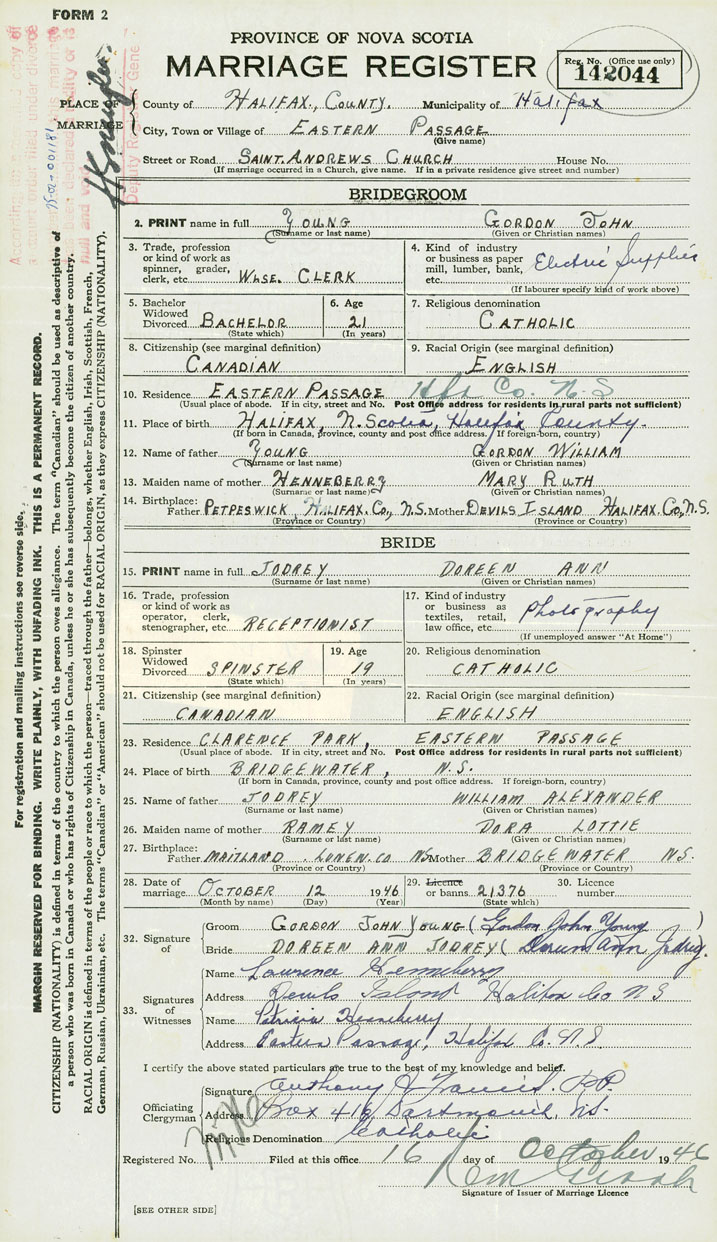 FORM 2
PROVINCE OF NOVA SCOTIA
MARRIAGE REGISTER
Reg. No. (Office use only)
142044
PLACE OF MARRIAGE
County of HALIFAX, COUNTY. Municipality of Halifax
City, Town or Village of EASTERN PASSAGE
(Give name)
Street or Road SAINT. ANDREWS CHURCH House No.
(If marriage occurred in a Church, give name. If in a private residence give street and number)
BRIDEGROOM
2. PRINT name in full YOUNG GORDON JOHN
(Surname or last name) (Given or Christian names)
3. Trade, profession or kind of work as spinner, grader, clerk, etc. WHSE. CLERK
4. Kind of industry or business as paper mill, lumber, bank, etc. Electric Supplies
(If labourer specify kind of work above)
5. Bachelor Widowed Divorced BACHELOR
(State which)
6. Age 21
(In years)
7. Religious denomination CATHOLIC
8. Citizenship (see marginal definition) CANADIAN
9. Racial Origin (see marginal definition) ENGLISH
10. Residence EASTERN PASSAGE Hfx Co. N S
(Usual place of abode. If in city, street and No. Post Office address for residents in rural parts not sufficient)
11. Place of birth HALIFAX, N. Scotia, Halifax County.
(If born in Canada, province, county and post office address. If foreign-born, country)
12. Name of father YOUNG GORDON WILLIAM
(Surname or last name) (Given or Christian names)
13. Maiden name of mother HENNEBERRY MARY RUTH
(Surname or last name) (Given or Christian names)
14. Birthplace: Father PETPESWICK HALIFAX. CO., N.S. Mother DEVILS ISLAND HALIFAX. CO., N.S.
(Province or Country) (Province or Country)
BRIDE
15. PRINT name in full JODREY DOREEN ANN
(Surname or last name) (Given or Christian names)
16. Trade, profession or kind of work as operator, clerk, stenographer, etc. RECEPTIONIST
17. Kind of industry or business as textiles, retail, law office, etc. Photography
(If unemployed answer "At Home")
18. Spinster Widowed Divorced SPINSTER
(State which)
19. Age 19
(In years)
20. Religious denomination CATHOLIC
21. Citizenship (see marginal definition) CANADIAN
22. Racial Origin (see marginal definition) ENGLISH
23. Residence CLARENCE PARK, EASTERN PASSAGE
(Usual place of abode. If in city, street and No. Post Office address for residents in rural parts not sufficient)
24. Place of birth BRIDGEWATER, N.S.
(If born in Canada, province, county and post office address. If foreign-born, country)
25. Name of father JODREY WILLIAM ALEXANDER
(Surname or last name) (Given or Christian names)
26. Maiden name of mother RAMEY DORA LOTTIE
(Surname or last name) (Given or Christian names)
27. Birthplace: Father MAITLAND. LUNEN. CO NS Mother BRIDGEWATER NS.
(Province or Country) (Province or Country)
28. Date of marriage OCTOBER 12 1946
(Month by name) (Day) (Year)
29. Licence or banns 21376
(State which)
30. Licence number
32. Signature of
Groom GORDON JOHN YOUNG (Gordon John Young)
Bride DOREEN ANN JODREY (Doreen Ann Jodrey.
33. Signatures of Witnesses
Name Lawrence Henneberry
Address Devils Island Halifax Co N S
Name Patricia Henneberry
Address Eastern Passage, Halifax Co. N.S.
I certify the above stated particulars are true to the best of my knowledge and belief.
Officiating Clergyman
Signature Anthony J. P.P.
Address Box 418 Dartmouth, N.S.
Religious Denomination Catholic
Registered No. Filed at this office 16 day of October 1946
Signature of Issuer of Marriage Licence
[SEE OTHER SIDE]
For registration and mailing instructions see reverse side.
MARGIN RESERVED FOR BINDING. WRITE PLAINLY, WITH UNFADING INK. THIS IS A PERMANENT RECORD.
CITIZENSHIP (NATIONALITY) is defined in terms of the country to which the person owes allegiance. The term "Canadian" should be used as descriptive of
a person who was born in Canada or who has rights of Citizenship in Canada, unless he or she has subsequently become the citizen of another country.
RACIAL ORIGIN is defined in terms of the people or race to which the person—traced through the father—belongs, whether English, Irish, Scottish, French,
German, Russian, Ukrainian, etc. The terms "Canadian" or "American" should not be used for RACIAL ORIGIN, as they express CITIZENSHIP (NATIONALITY).